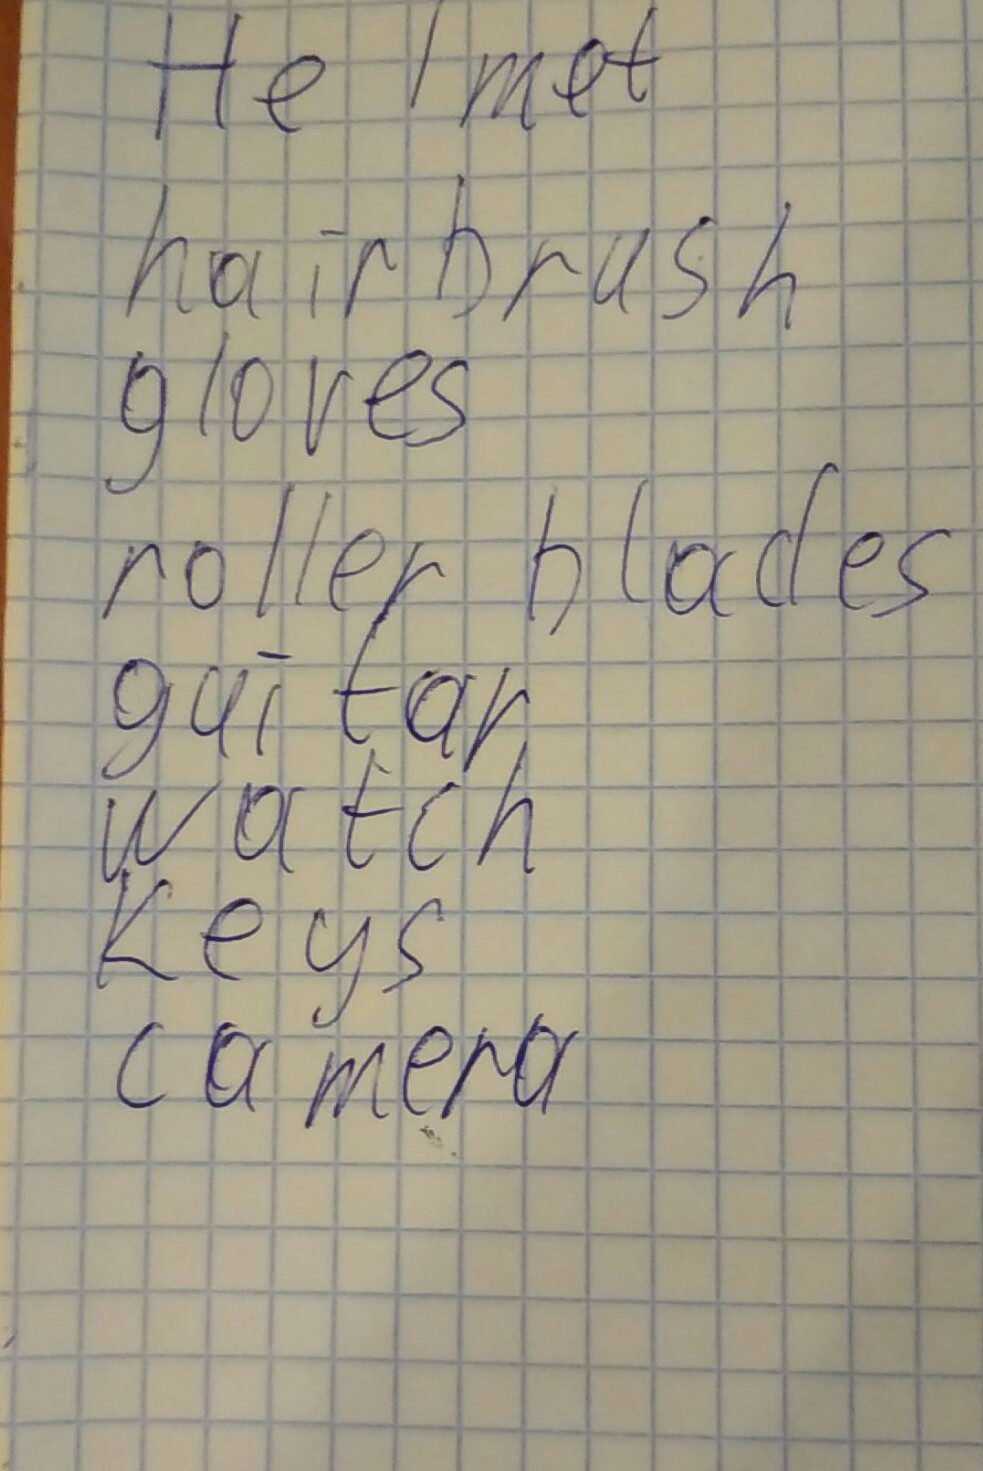 Helmet
hairbrush
gloves
roller blades
guitar
watch
keys
camera